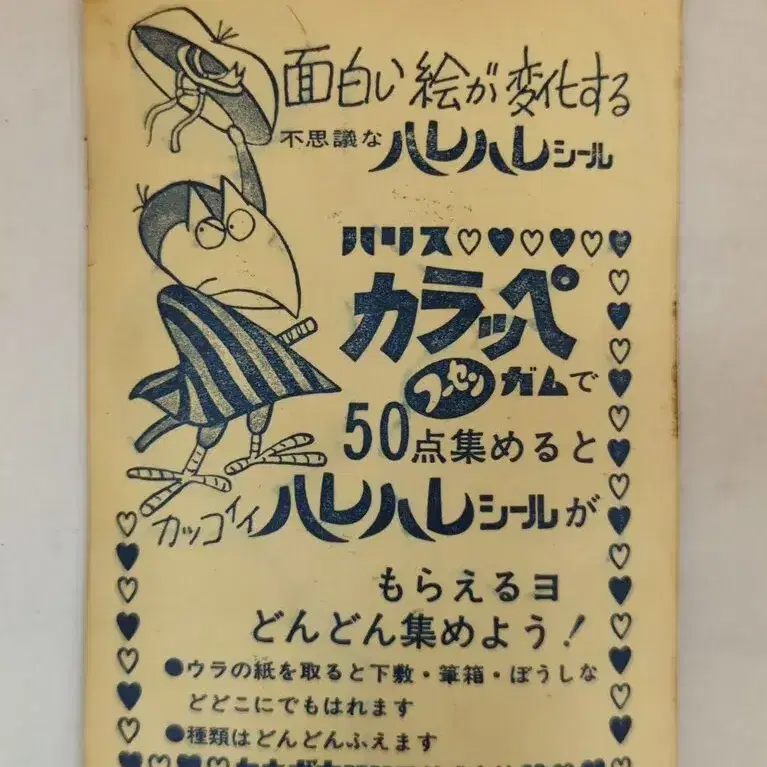 面白い絵が変化する
不思議なハレハレシール
ハリス♡♥♡♥♡♥
カラッペ
フーセンガムで
50点集めると
カッコイイハレハレシールが
もらえるヨ
どんどん集めよう!
●ウラの紙を取ると下敷・筆箱・ぼうしな
どどこにでもはれます
●種類はどんどんふえます